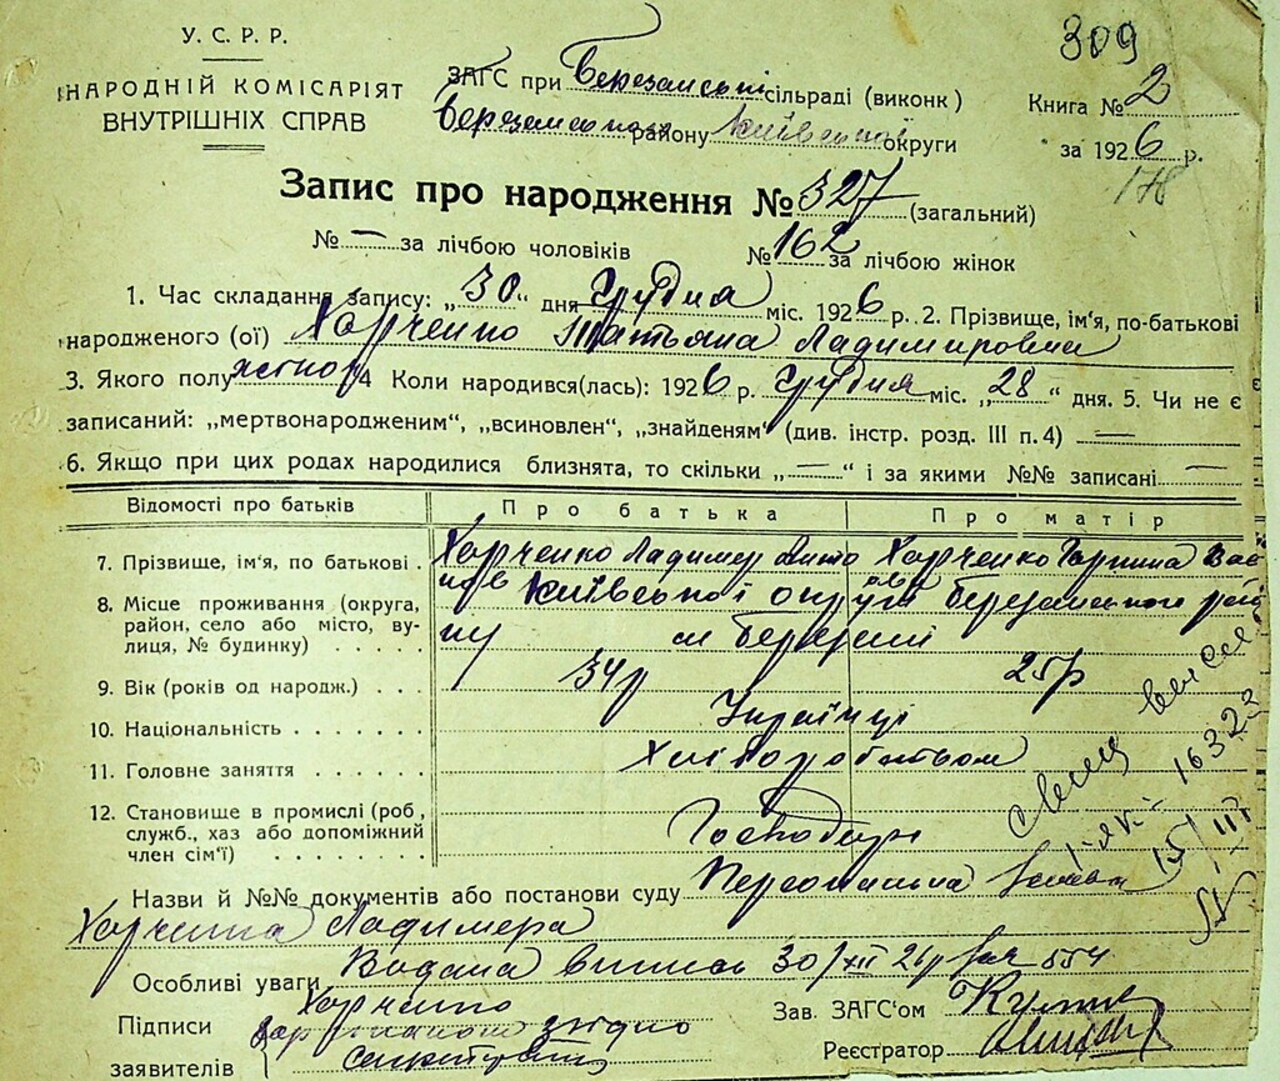 309
У. С. Р. Р.
НАРОДНІЙ КОМІСАРІЯТ
ВНУТРІШНІХ СПРАВ
ЗАГС при Березанські сільраді (виконк)
Березанського району Київської округи
Книга № 2
за 1926 р.
178
Запис про народження № 327 (загальний)
№ — за лічбою чоловіків № 162 за лічбою жінок
1. Час складання запису: „30“ дня Грудня міс. 1926 р. 2. Прізвище, ім'я, по-батькові
народженого (ої) Харченко Татьяна Ладимировна
3. Якого полу жіноч 4 Коли народився(лась): 1926 р. Грудня міс. „28“ дня. 5. Чи не є
записаний: „мертвонародженим“, „всиновлен“, „знайденям“ (див. інстр. розд. III п. 4) —
6. Якщо при цих родах народилися близнята, то скільки „—“ і за якими №№ записані —
Відомості про батьків Про батька Про матір
7. Прізвище, ім'я, по батькові Харченко Ладимер Харченко Горпина Вас
8. Місце проживання (округа, район, село або місто, вулиця, № будинку) Київської округи Березанського райо
ну м Березані
9. Вік (років од народж.) 34р 25р
10. Національність Українці
11. Головне заняття Хліборобством
12. Становище в промислі (роб, служб., хаз або допоміжний член сім'ї) Господарі
Назви й №№ документів або постанови суду Персональна
Харченка Ладимера
Особливі уваги Видана випись 30/XII 26р 554
Підписи заявителів Харченко
Зав. ЗАГС'ом
Реєстратор
16322
15/III